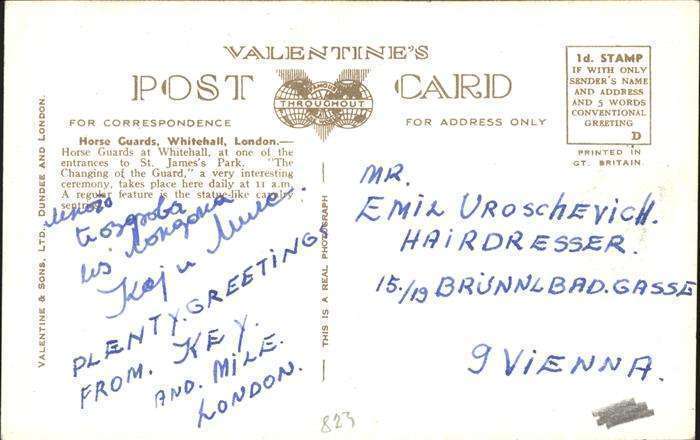 VALENTINE'S
POST CARD
FAMOUS
THROUGHOUT
THE WORLD
FOR CORRESPONDENCE
FOR ADDRESS ONLY
1d. STAMP
IF WITH ONLY
SENDER'S NAME
AND ADDRESS
AND 5 WORDS
CONVENTIONAL
GREETING
D
PRINTED IN
GT. BRITAIN
Horse Guards, Whitehall, London.—
Horse Guards at Whitehall, at one of the
entrances to St. James's Park. "The
Changing of the Guard," a very interesting
ceremony, takes place here daily at 11 a.m.
A regular feature is the statue-like cavalry
много
поздрава
из Лондона
Кеј и Миле.
PLENTY. GREETINGS
FROM. KEY.
AND. MILE.
LONDON.
MR.
EMIL UROSCHEVICH.
HAIRDRESSER.
15./19 BRÜNNLBAD. GASSE
9 VIENNA.
VALENTINE & SONS, LTD., DUNDEE AND LONDON.
THIS IS A REAL PHOTOGRAPH
823